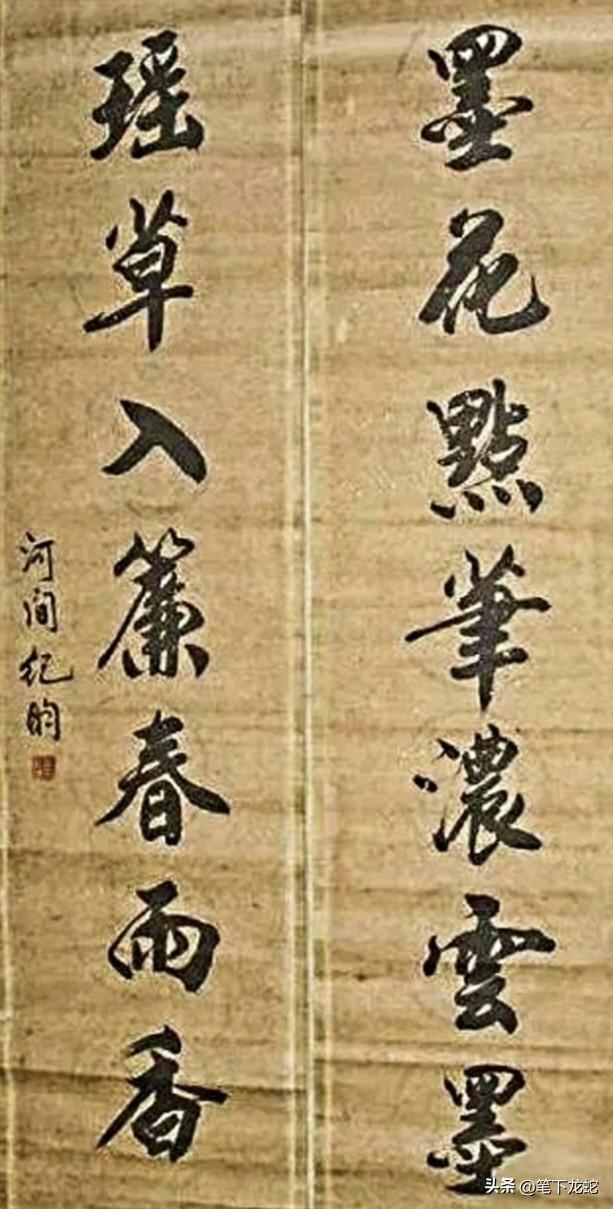 墨花點筆濃雲墨
瑶草入簾春雨香
河間紀昀
头条 @笔下龙蛇